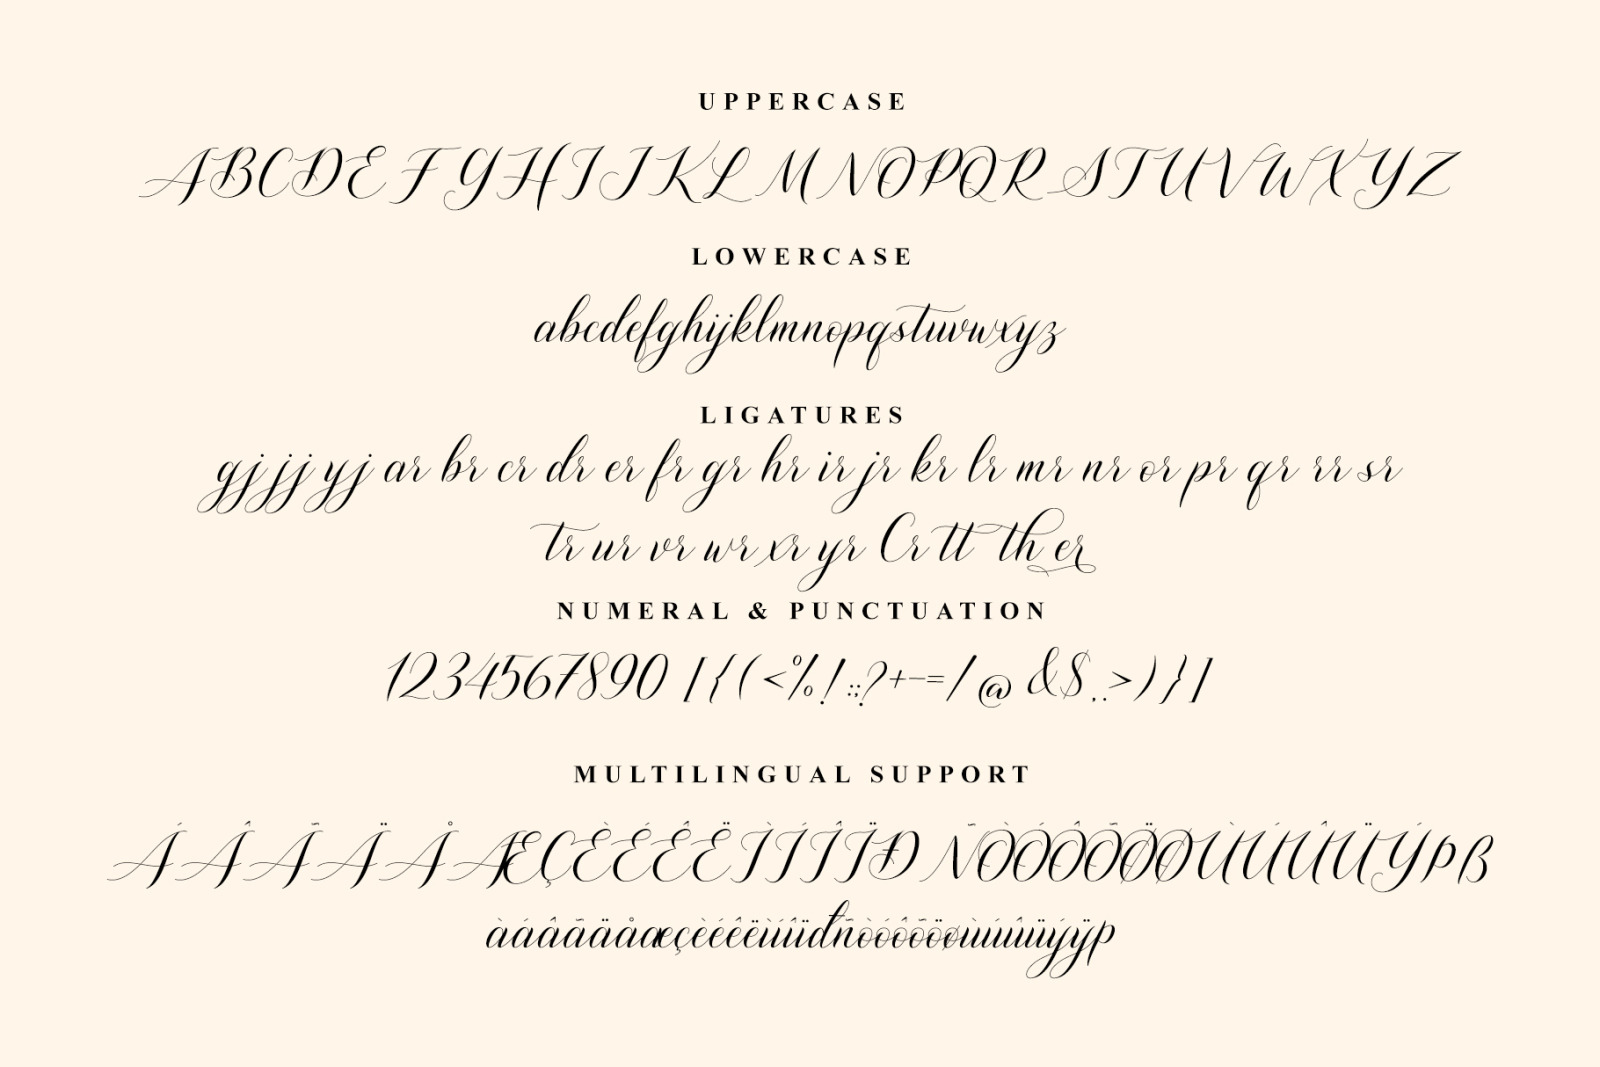 UPPERCASE
ABCDEFGHIJKLMNOPQRSTUVWXYZ
LOWERCASE
abcdefghijklmnopqstuvwxyz
LIGATURES
gj jj yj ar br cr dr er fr gr hr ir jr kr lr mr nr or pr qr rr sr
tr ur vr wr xr yr Cr tt th er
NUMERAL & PUNCTUATION
1234567890 [{(<%!:;?+-=/@&$,.>)}]
MULTILINGUAL SUPPORT
ÁÂÃÄÅÆÇÈÉÊËÌÍÎÏĐÑÒÓÔÕÖØÙÚÛÜÝÞß
àáâãäåæçèéêëìíîïđñòóôõöøùúûüýÿþ